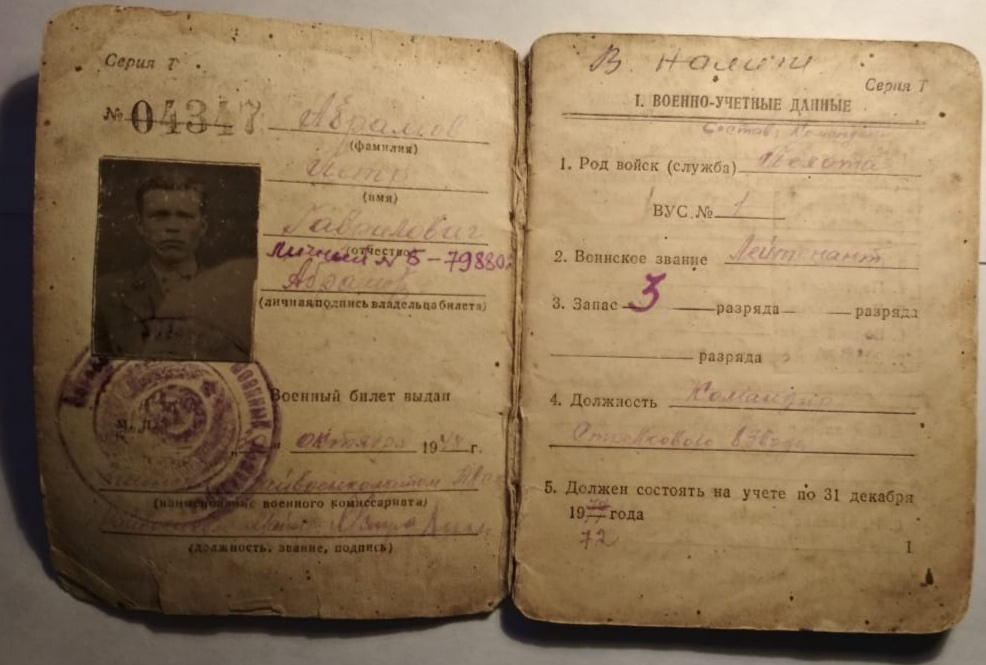 Серия Т
№ 04347 Абрамов
(фамилия)
(имя)
Гаврилович
(отчество)
Личный № Б-79880
Абрамов
(личная подпись владельца билета)
Военный билет выдан
М. П.
октября 194 г.
(наименование военного комиссариата)
(должность, звание, подпись)
Серия Т
I. ВОЕННО-УЧЕТНЫЕ ДАННЫЕ
Состав:
1. Род войск (служба) Пехота
ВУС № 1
2. Воинское звание Лейтенант
3. Запас 3 разряда разряда
разряда
4. Должность Командир
Стрелкового взвода
5. Должен состоять на учете по 31 декабря
19 года
72
1